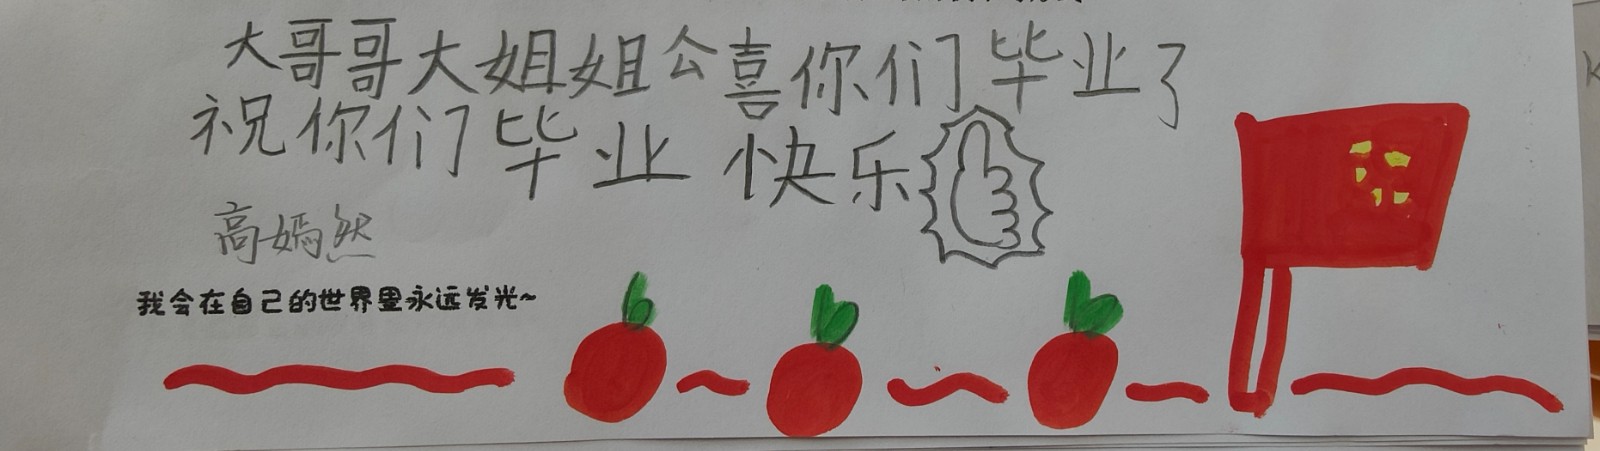 大哥哥大姐姐公喜你们毕业了
祝你们毕业快乐
高嫣然
我会在自己的世界里永远发光~